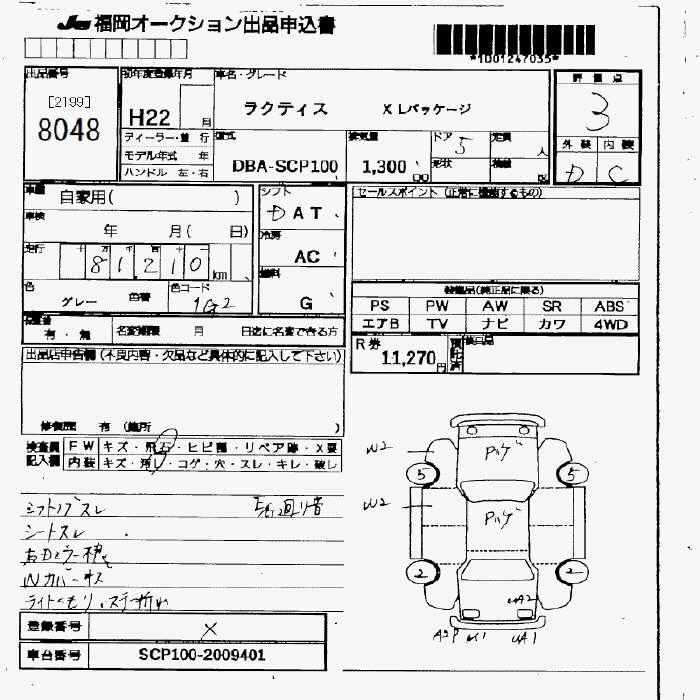 JU 福岡オークション出品申込書
*1D01247035*
出品番号
[2199]
8048
初年度登録年月
H22 月
車名・グレード
ラクティス XLパッケージ
評価点
3
外装 内装
D C
ディーラー・並 行
モデル年式 年
ハンドル 左・右
型式
DBA-SCP100
排気量
1,300 CC
ドア
5
形状
定員
人
積載
車歴
自家用( )
シフト
DAT
セールスポイント (正常に機能するもの)
車検
年 月( 日)
冷房
AC
走行 十 万 千 百 十 一
81,210 km
燃料
G
色
グレー
色替
色コード
1G2
装備品(純正品に限る)
PS PW AW SR ABS
エアB TV ナビ カワ 4WD
有・無
名変期限 月 日迄に名変できる方
R券
11,270円
預託済
後日品
出品店申告欄 (不良内容・欠品など具体的に記入して下さい)
修復歴 有 (箇所 )
検査員記入欄
FW キズ・飛石・ヒビ割・リペア跡・X要
内装 キズ・汚れ・コゲ・穴・スレ・キレ・破レ
シフトノブスレ
シートスレ
Wカバーキズ
ライトくもり、ステー折れ
W2
W2
5 5
2 2
A1
登録番号 X
車台番号 SCP100-2009401